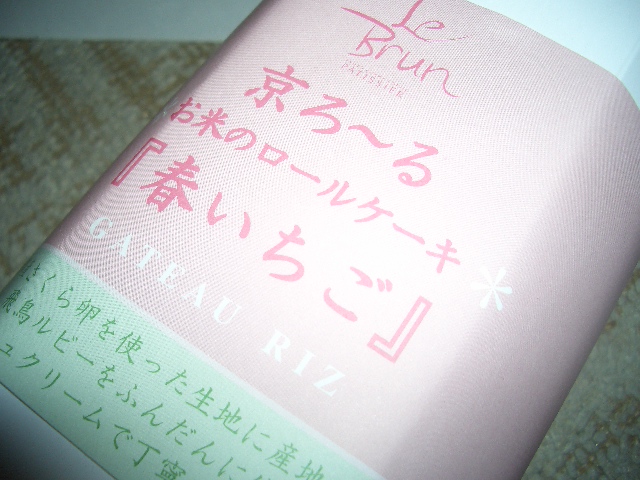 Le Brun
PATISSIER
京ろ〜る
お米のロールケーキ
『春いちご』
GATEAU RIZ
さくら卵を使った生地に産地
飛鳥ルビーをふんだんに
クリームで丁寧